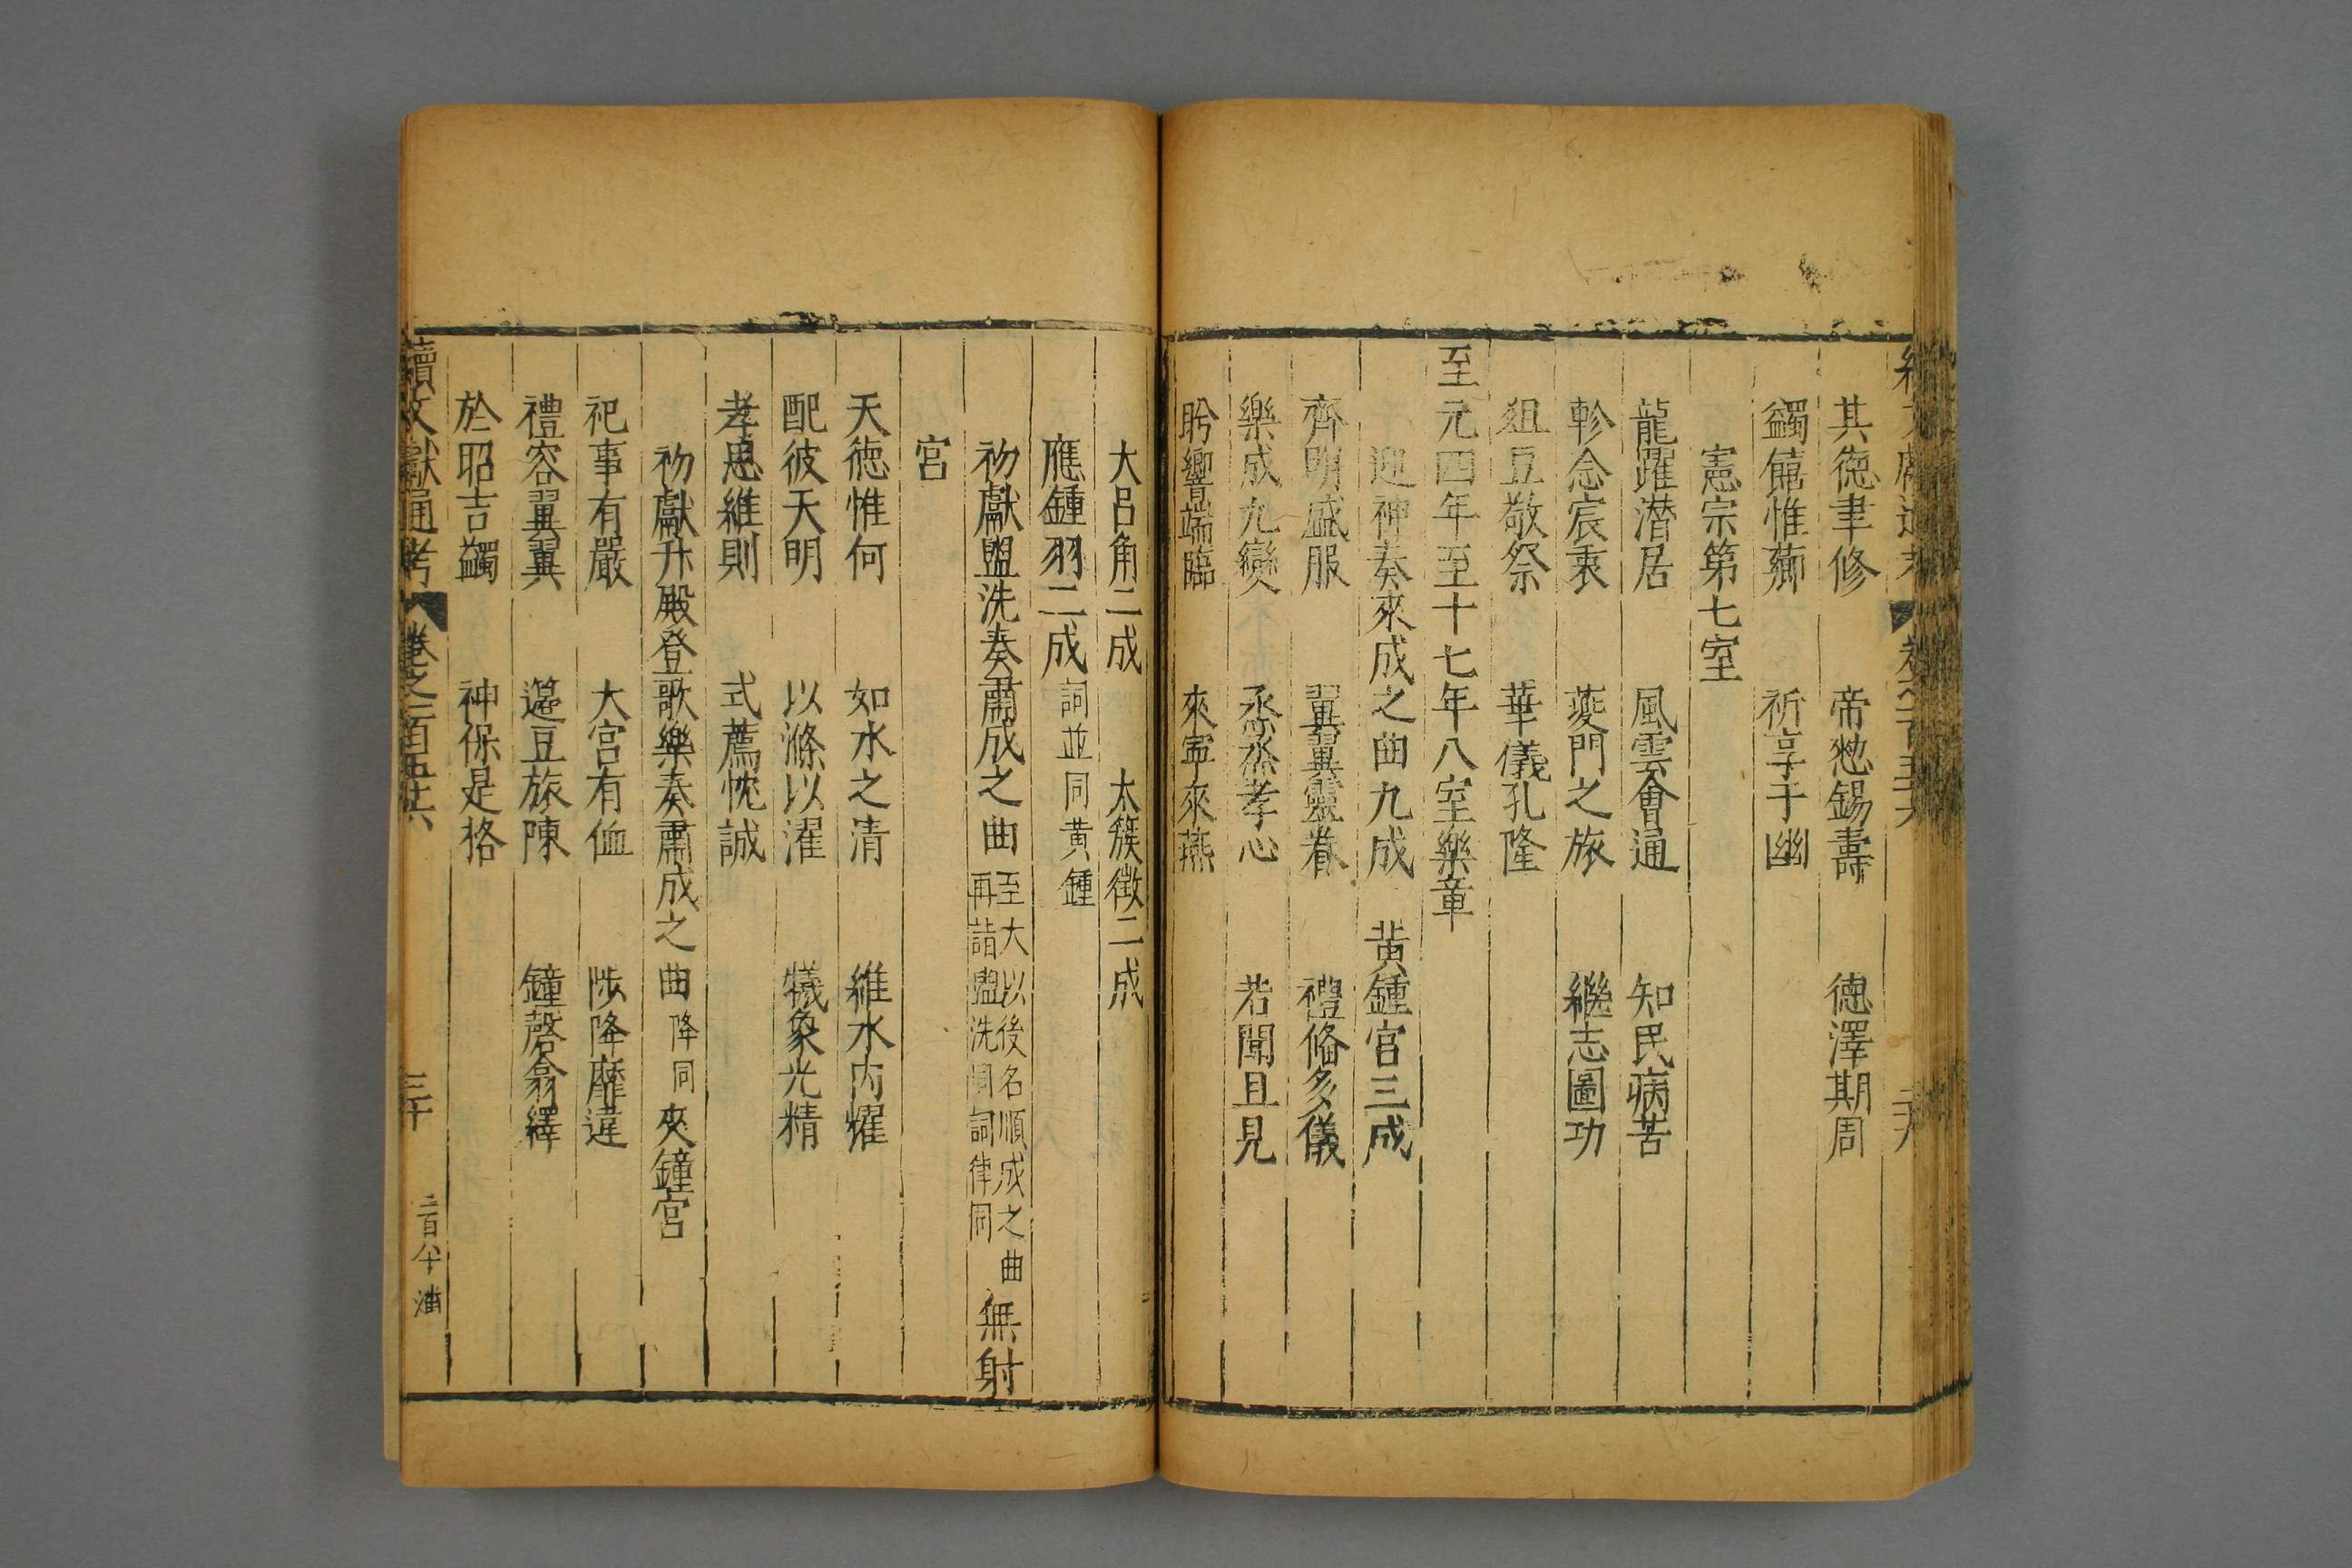 其德聿修　帝慭錫壽　德澤期周
蠲饎惟薌　祈享于幽
憲宗第七室
龍躍潛居　風雲會通　知民病苦
軫念宸衷　夔門之旅　繼志圖功
俎豆敬祭　華儀孔隆
至元四年至十七年八室樂章
迎神奏來成之曲九成　黃鍾宮三成
齊明盛服　翼翼靈眷　禮備多儀
樂成九變　烝烝孝心　若聞且見
肸蠁端臨　來寧來燕
大呂角二成　太簇徵二成
應鍾羽二成詞並同黃鍾
初獻盥洗奏肅成之曲至大以後名順成之曲再詣盥洗同詞律同無射
宮
天德惟何　如水之清　維水內耀
配彼天明　以滌以濯　犧象光精
孝思維則　式薦忱誠
初獻升殿登歌樂奏肅成之曲降同夾鐘宮
祀事有嚴　大宮有侐　陟降靡違
禮容翼翼　籩豆旅陳　鐘磬翕繹
於昭吉蠲　神保是格
續文獻通考　卷之一百五十六　三十　二百八十　潘